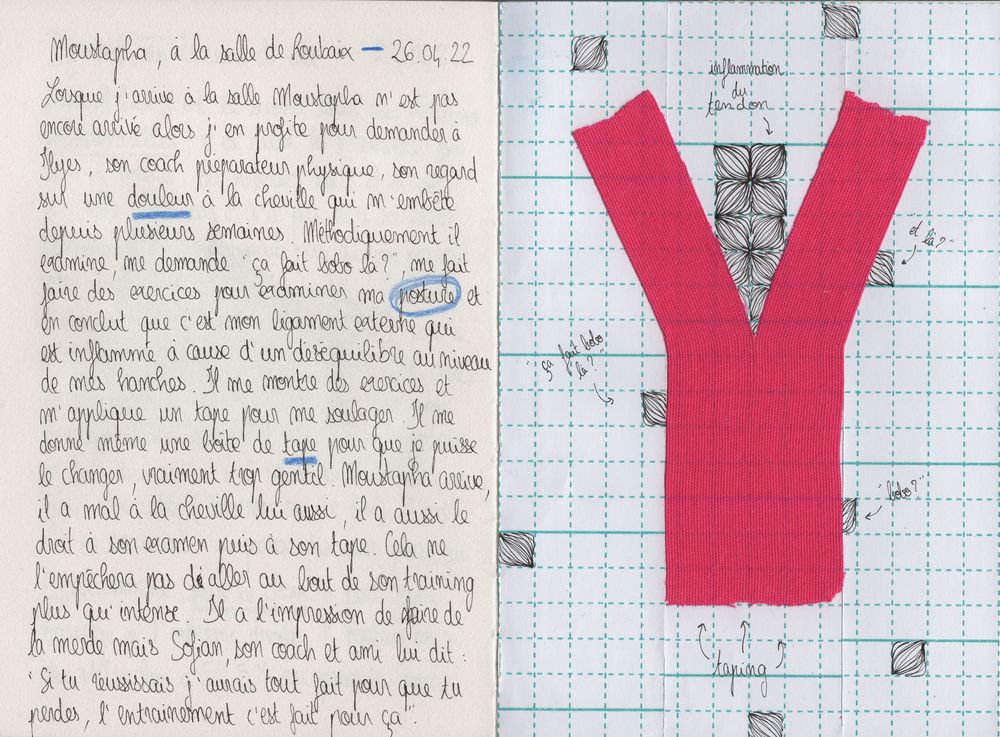 Moustapha, à la salle de Roubaix – 26.04.22
Lorsque j'arrive à la salle Moustapha n'est pas
encore arrivé alors j'en profite pour demander à
Ilyes, son coach préparateur physique, son regard
sur une douleur à la cheville qui m'embête
depuis plusieurs semaines. Méthodiquement il
examine, me demande "ça fait bobo là?", me fait
faire des exercices pour examiner ma posture et
en conclut que c'est mon ligament externe qui
est inflammé à cause d'un déséquilibre au niveau
de mes hanches. Il me montre des exercices et
m'applique un tape pour me soulager. Il me
donne même une boîte de tape pour que je puisse
le changer, vraiment trop gentil. Moustapha arrive,
il a mal à la cheville lui aussi, il a aussi le
droit à son examen puis à son tape. Cela ne
l'empêchera pas d'aller au bout de son training
plus qu'intense. Il a l'impression de faire de
la merde mais Sofian, son coach et ami lui dit :
"Si tu réussissais j'aurais tout fait pour que tu
perdes, l'entrainement c'est fait pour ça".
inflammation
du
tendon
"et là?"
"ça fait bobo
là?"
"bobo?"
taping